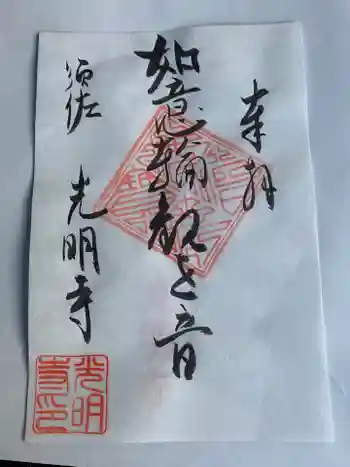 奉拝
如意輪観世音
須佐 光明寺
光明寺印